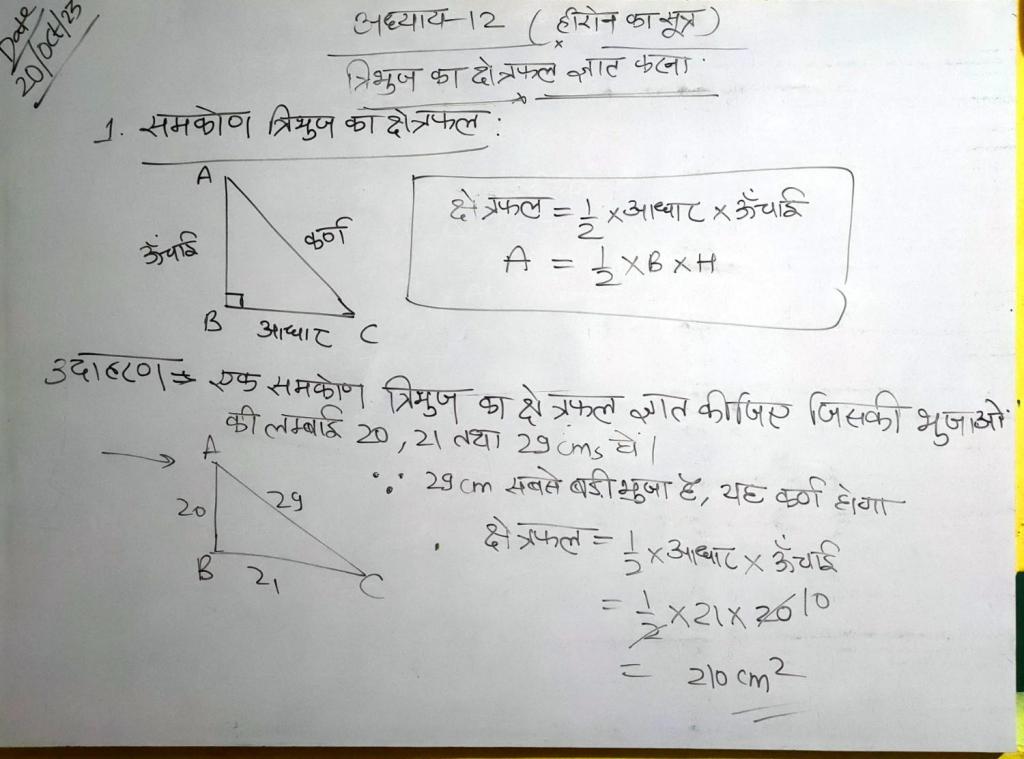 Date
20/Oct/23
अध्याय-12 ( हीरोन का सूत्र )
त्रिभुज का क्षेत्रफल ज्ञात करना
1. समकोण त्रिभुज का क्षेत्रफल :
A
ऊँचाई
कर्ण
B
आधार
C
क्षेत्रफल = 1/2 × आधार × ऊँचाई
A = 1/2 × B × H
उदाहरण ⇒ एक समकोण त्रिभुज का क्षेत्रफल ज्ञात कीजिए जिसकी भुजाओं
की लम्बाई 20, 21 तथा 29 cms है।
→
A
20
29
B
21
C
∵ 29 cm सबसे बड़ी भुजा है, यह कर्ण होगा
क्षेत्रफल = 1/2 × आधार × ऊँचाई
= 1/2 × 21 × 20 10
= 210 cm²